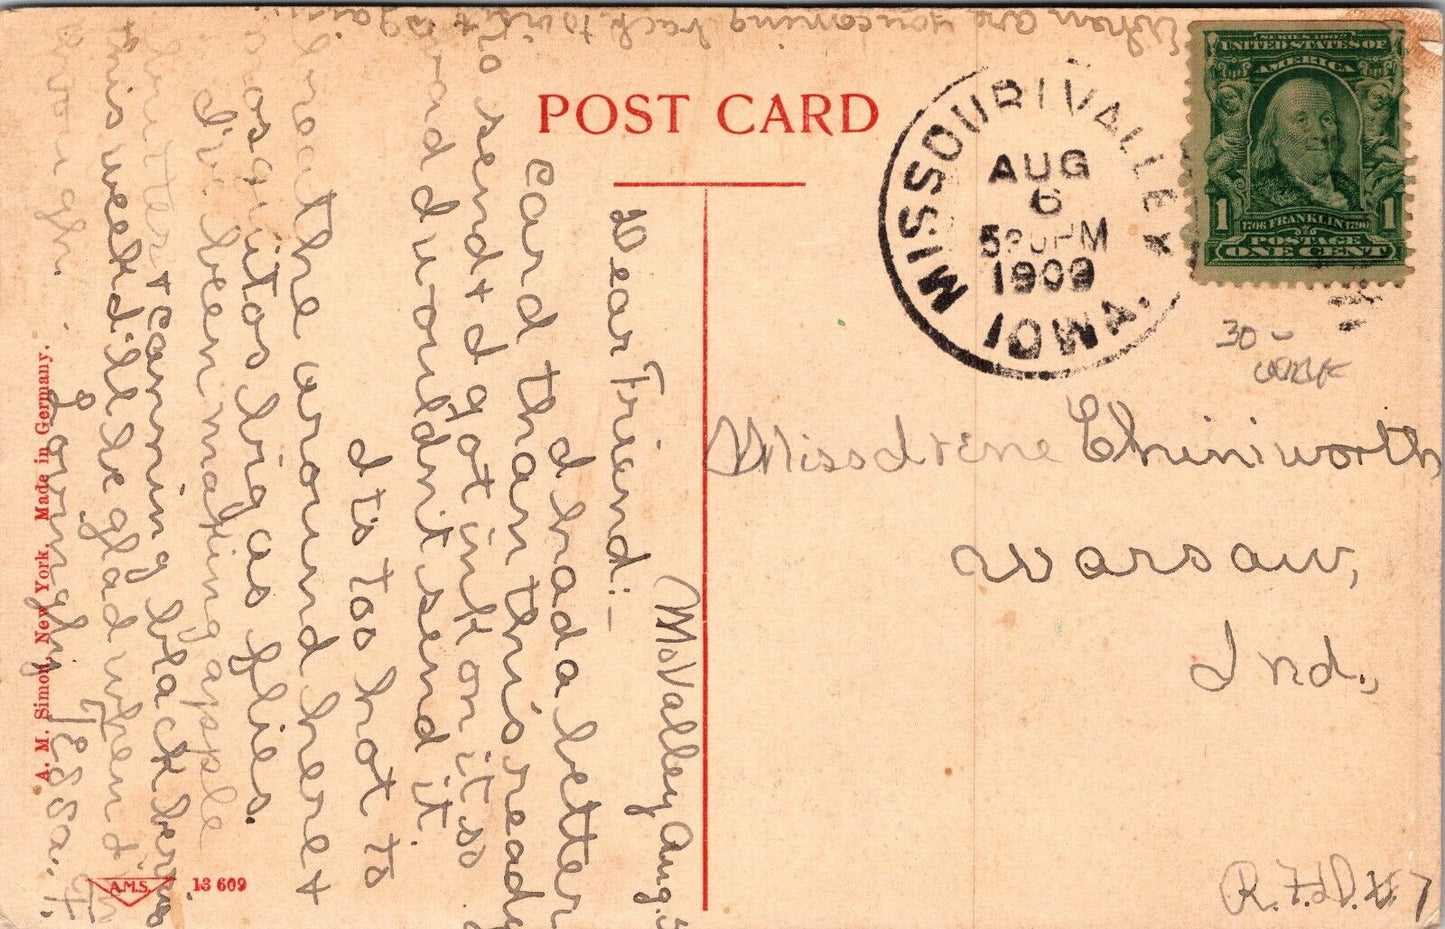 When are you coming back to visit again
POST CARD
MISSOURI VALLEY
AUG
6
1909
IOWA.
SERIES 1902
UNITED STATES OF
AMERICA
1 1
1706 FRANKLIN 1790
POSTAGE
ONE CENT
30-
Miss Irene Chiniworth
Warsaw,
Ind.,
R.F.D. # 7
Mo Valley Aug.
Dear Friend:-
I had a better
card than this ready
to send & I got ink on it so
I wouldn't send it.
It's too hot to
breathe around here &
mosquitos big as flies.
I've been making apple
butter & canning black berries
this week I'll be glad when I'm
through.
Lovingly Tessa. F.
A. M. Simon, New York. Made in Germany.
A.M.S. 13 609